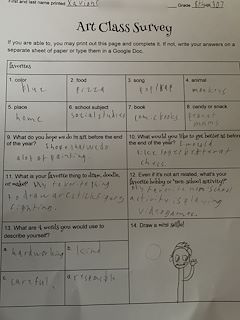 First and last name printed
Art Class Survey
If you are able, you may print out this page and complete it. If not, write your answers on a
separate sheet of paper or type them in a Google Doc.
favorites
1. color 2. food 3. song 4. animal
blue pizza pop/rap monkeys
5. place 6. school subject 7. book 8. candy or snack
home social studies comic books
9. What do you hope we do in art before the end of the year?
I hope that we do
a lot of painting.
10. What would you like to get better at before the end of the year?
I would
like to get better at
chess.
11. What is your favorite thing to draw, doodle, or make?
My favorite thing
to draw are stick guys
fighting.
12. Even if it's not art related, what's your favorite hobby or "non school activity?"
My favorite non school
activity is playing
video games.
13. What are 4 words you would use to describe yourself?
a. hardworking b. kind
c. careful d.
14. Draw a mini selfie!